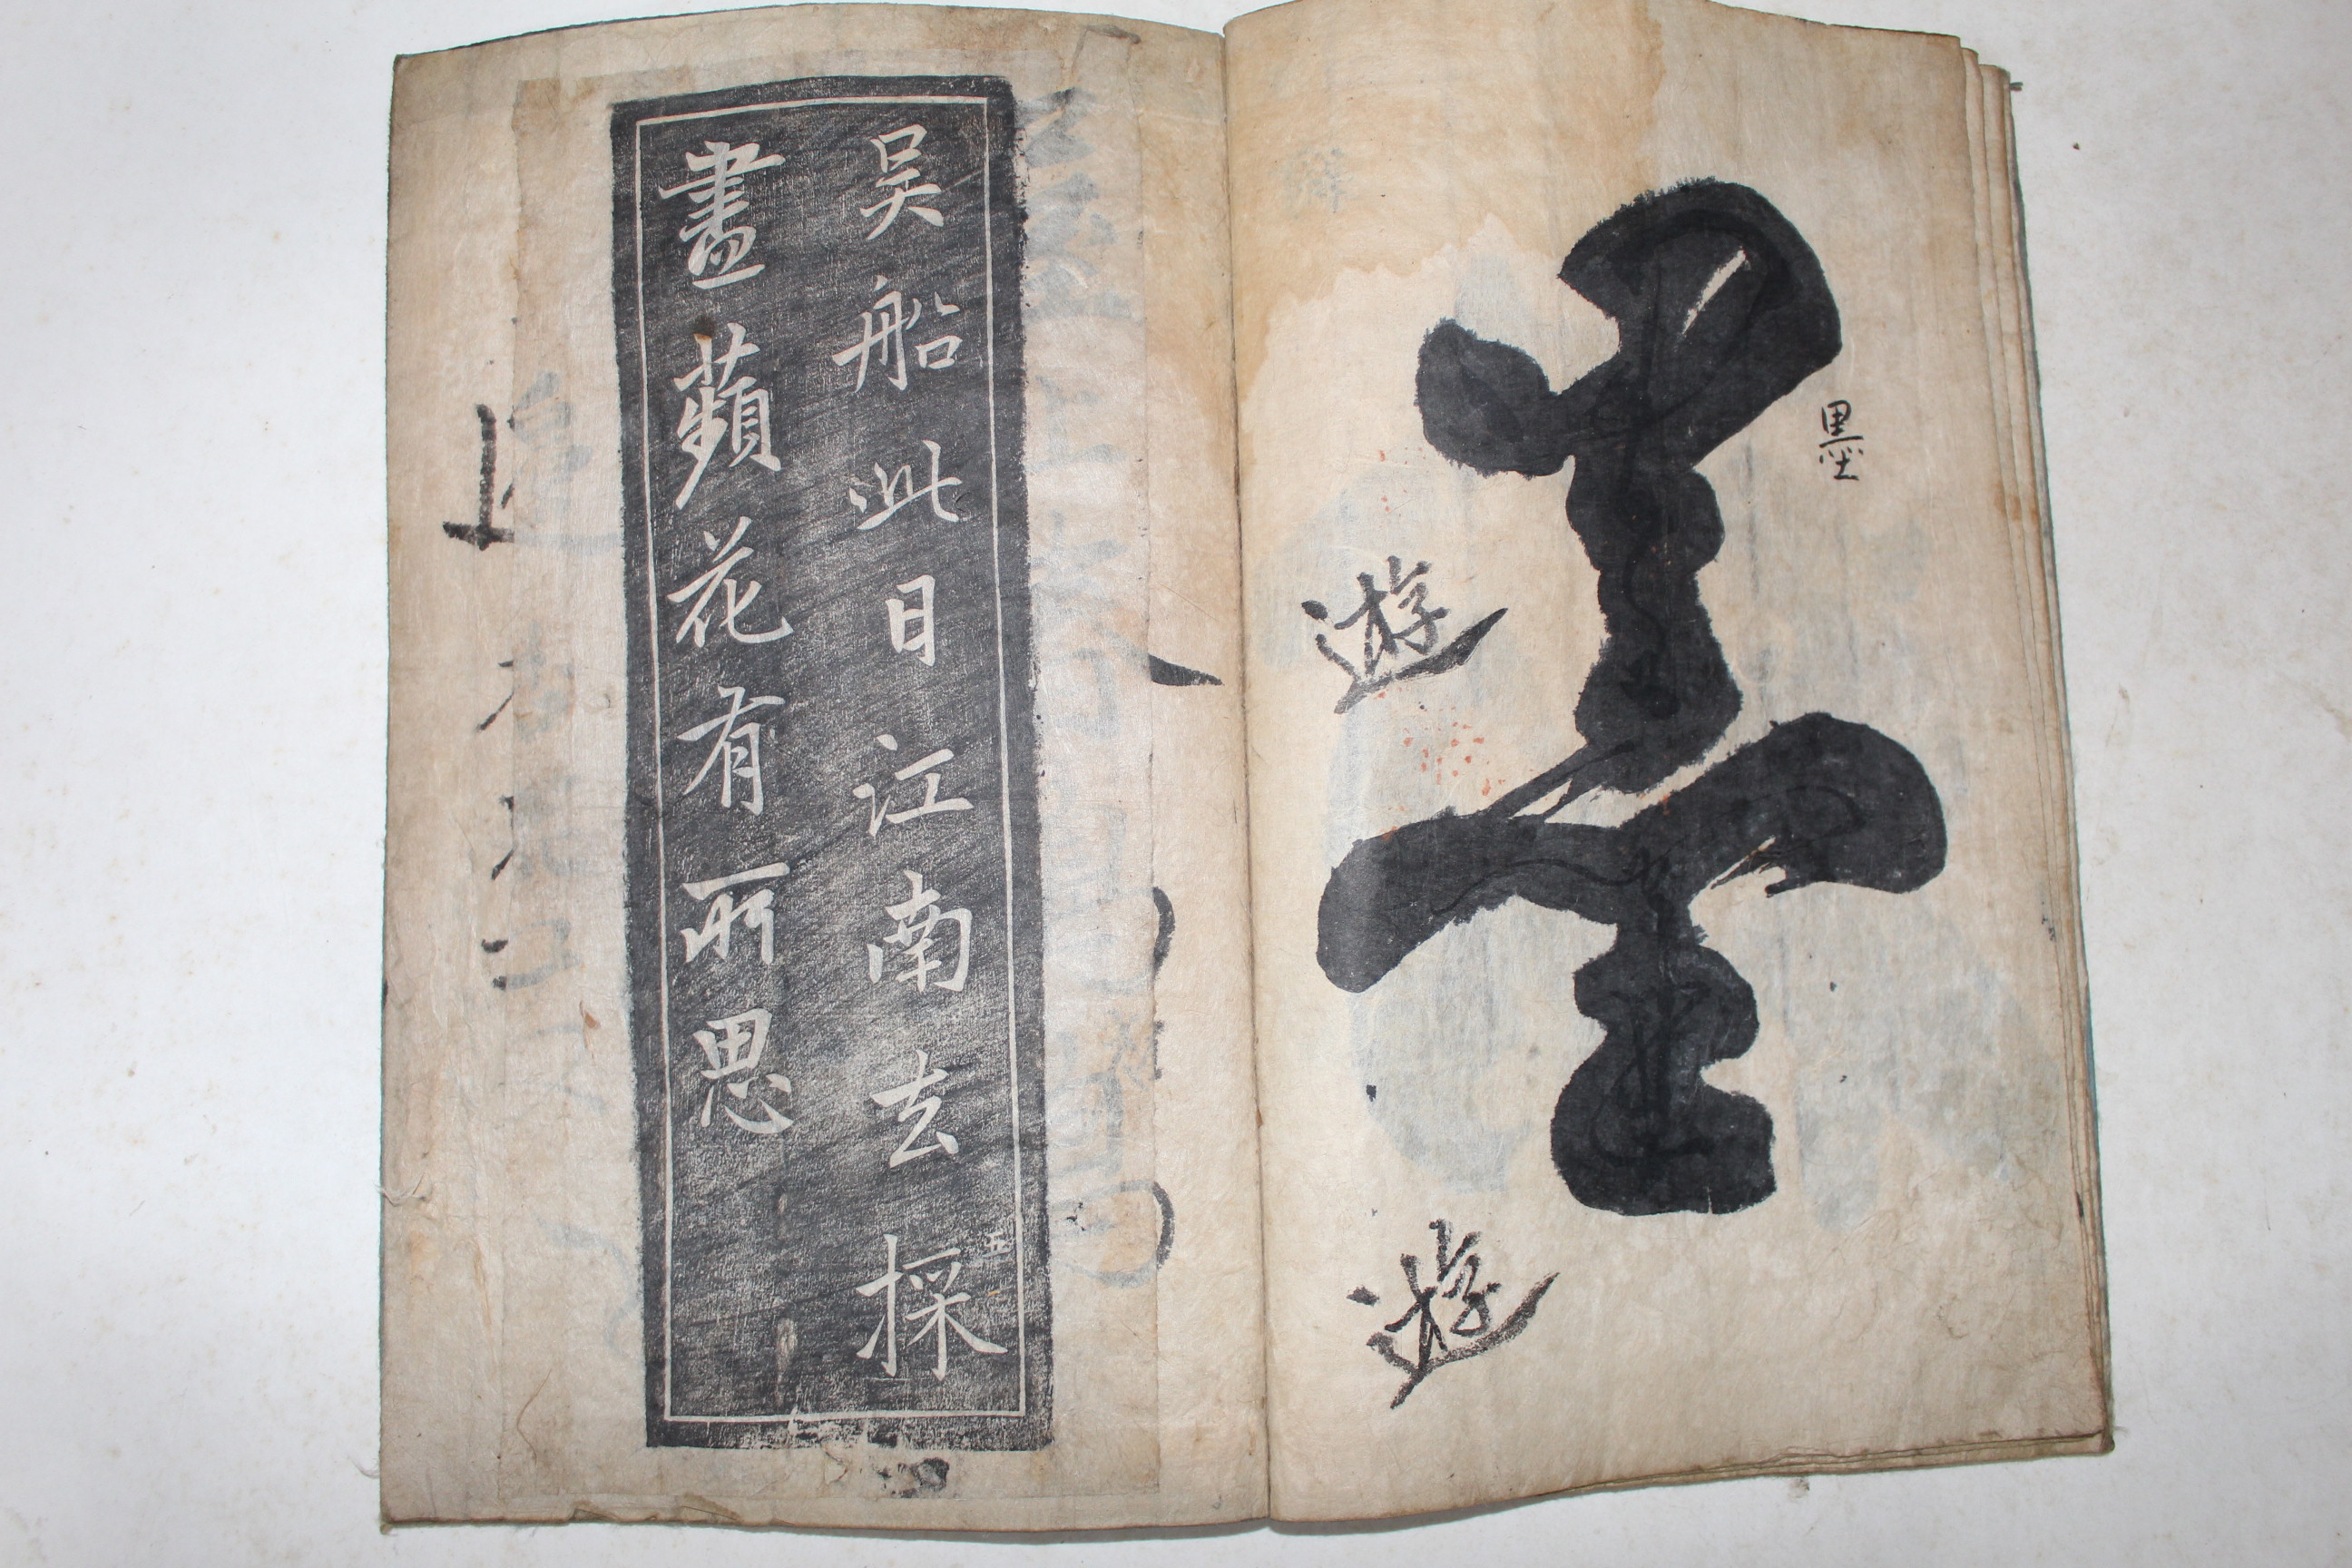 墨
墨
遊
遊
吳船此日江南去採
五
畫蘋花有所思